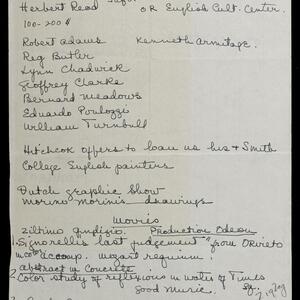 Herbert Read
OR English Cult. Center.
100-200 $
Robert Adams   Kenneth Armitage.
Reg Butler
Lynn Chadwick
Geoffrey Clarke
Bernard Meadows
Eduardo Poulozzi
William Turnbull
Hitchcok offers to loan us his + Smith
College English painters
Dutch graphic show
Morino Morinis drawings
Movies
ziltimo gudizio. Production Odeon
1. Signorellis "last judgement" from ORvieto
in color accomp. mozart requium!
abstract in concrete
2 Color study of reflexions in water of Times
Sq.
good music.